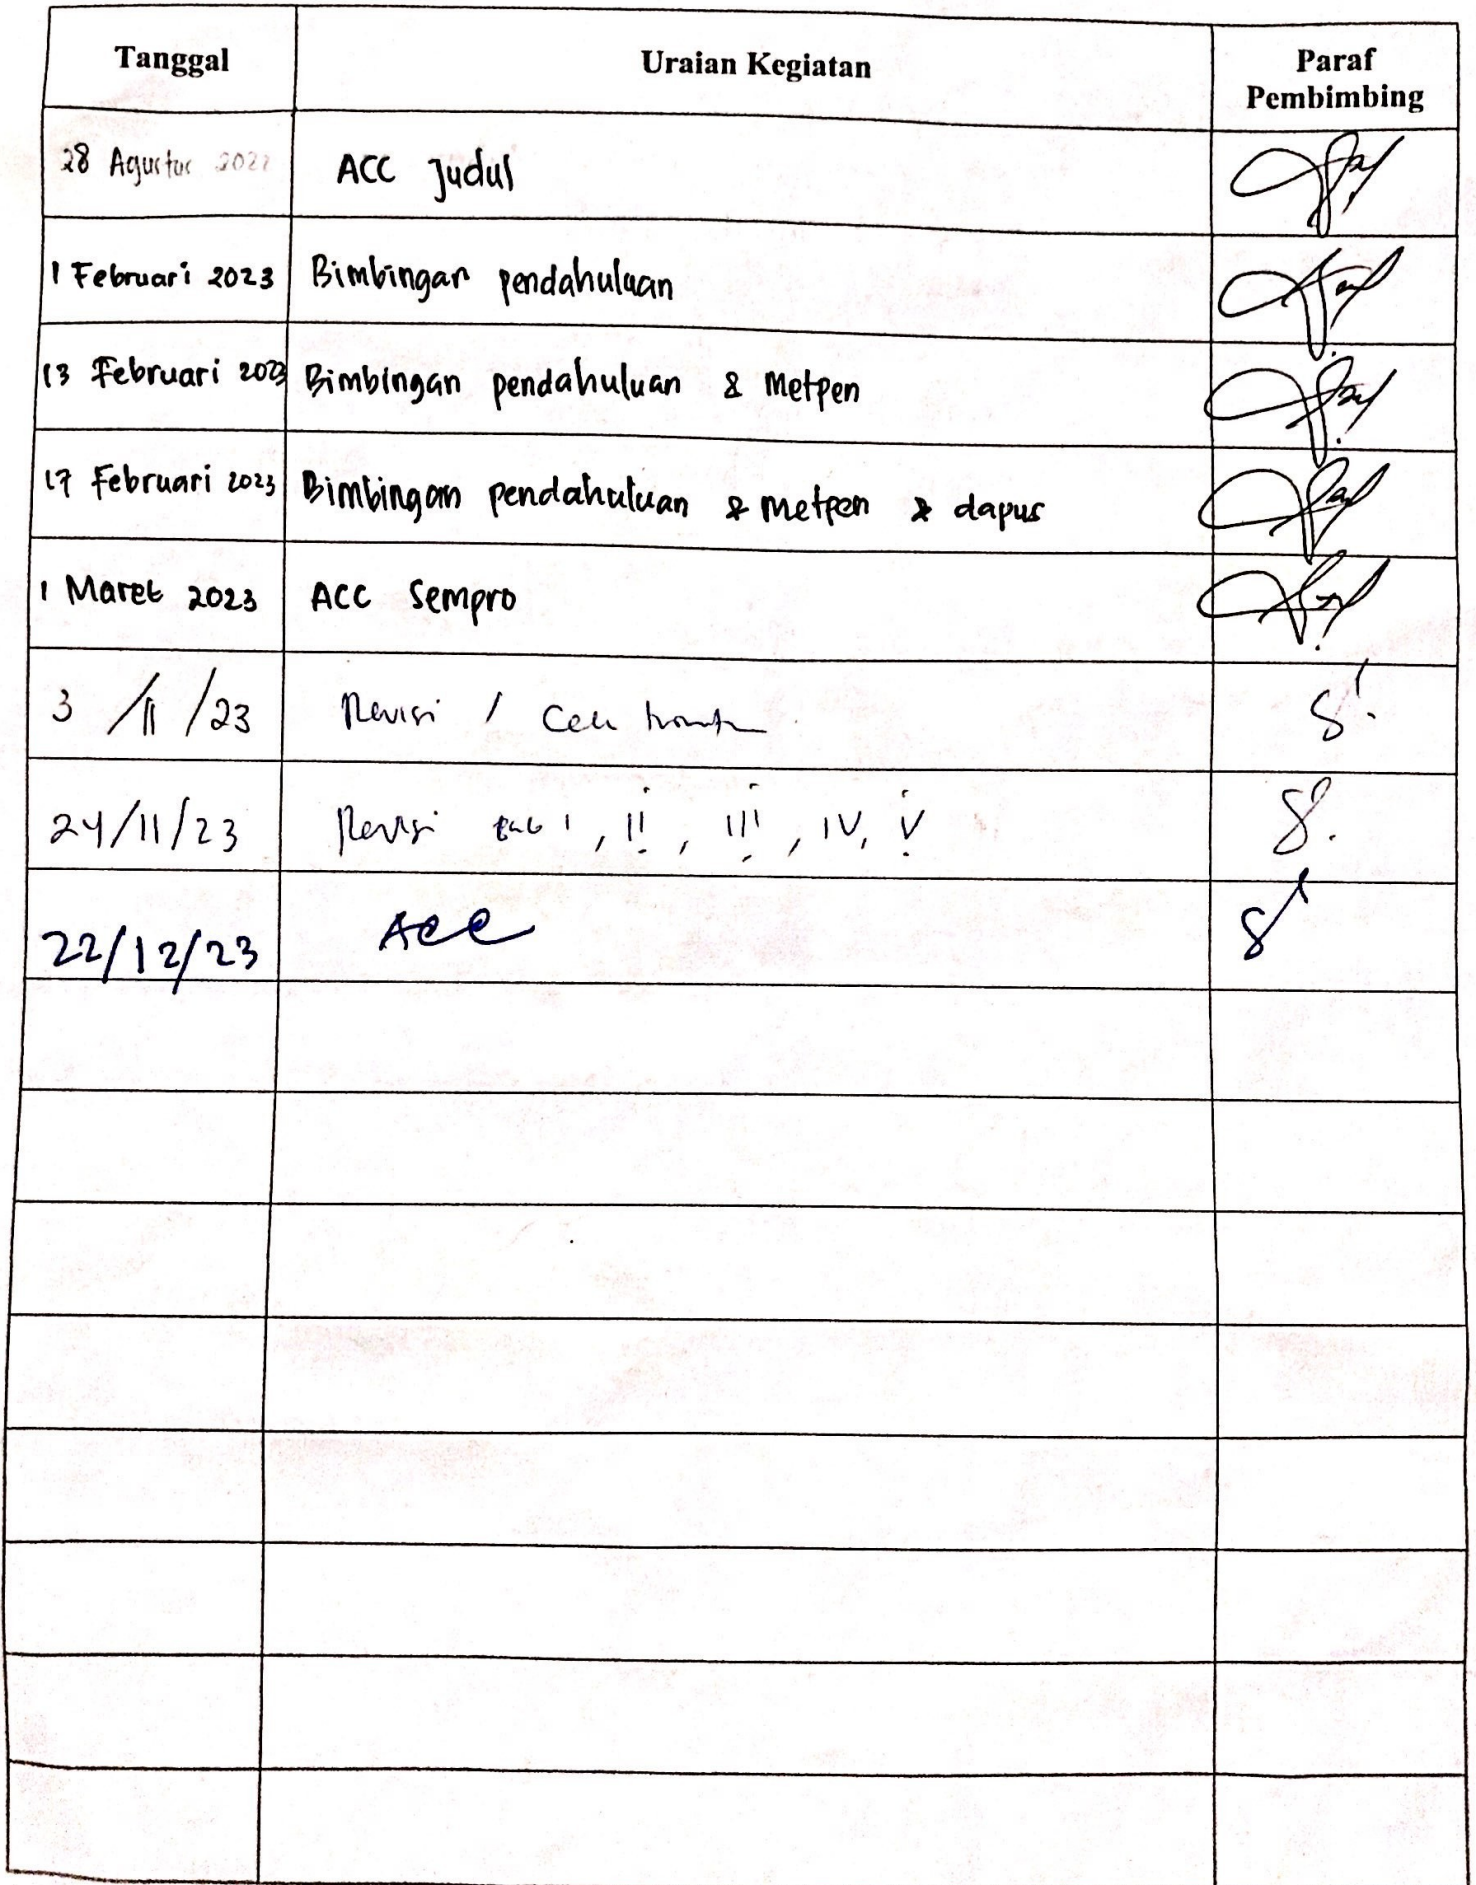 Tanggal Uraian Kegiatan Paraf
Pembimbing
28 Agustus 2022 ACC Judul
1 Februari 2023 Bimbingan pendahuluan
13 Februari 2023 Bimbingan pendahuluan & Metpen
17 Februari 2023 Bimbingan pendahuluan & Metpen & dapus
1 Maret 2023 ACC Sempro
3 /11/23 Revisi / Cek
24/11/23 Revisi bab I, II, III, IV, V
22/12/23 Acc